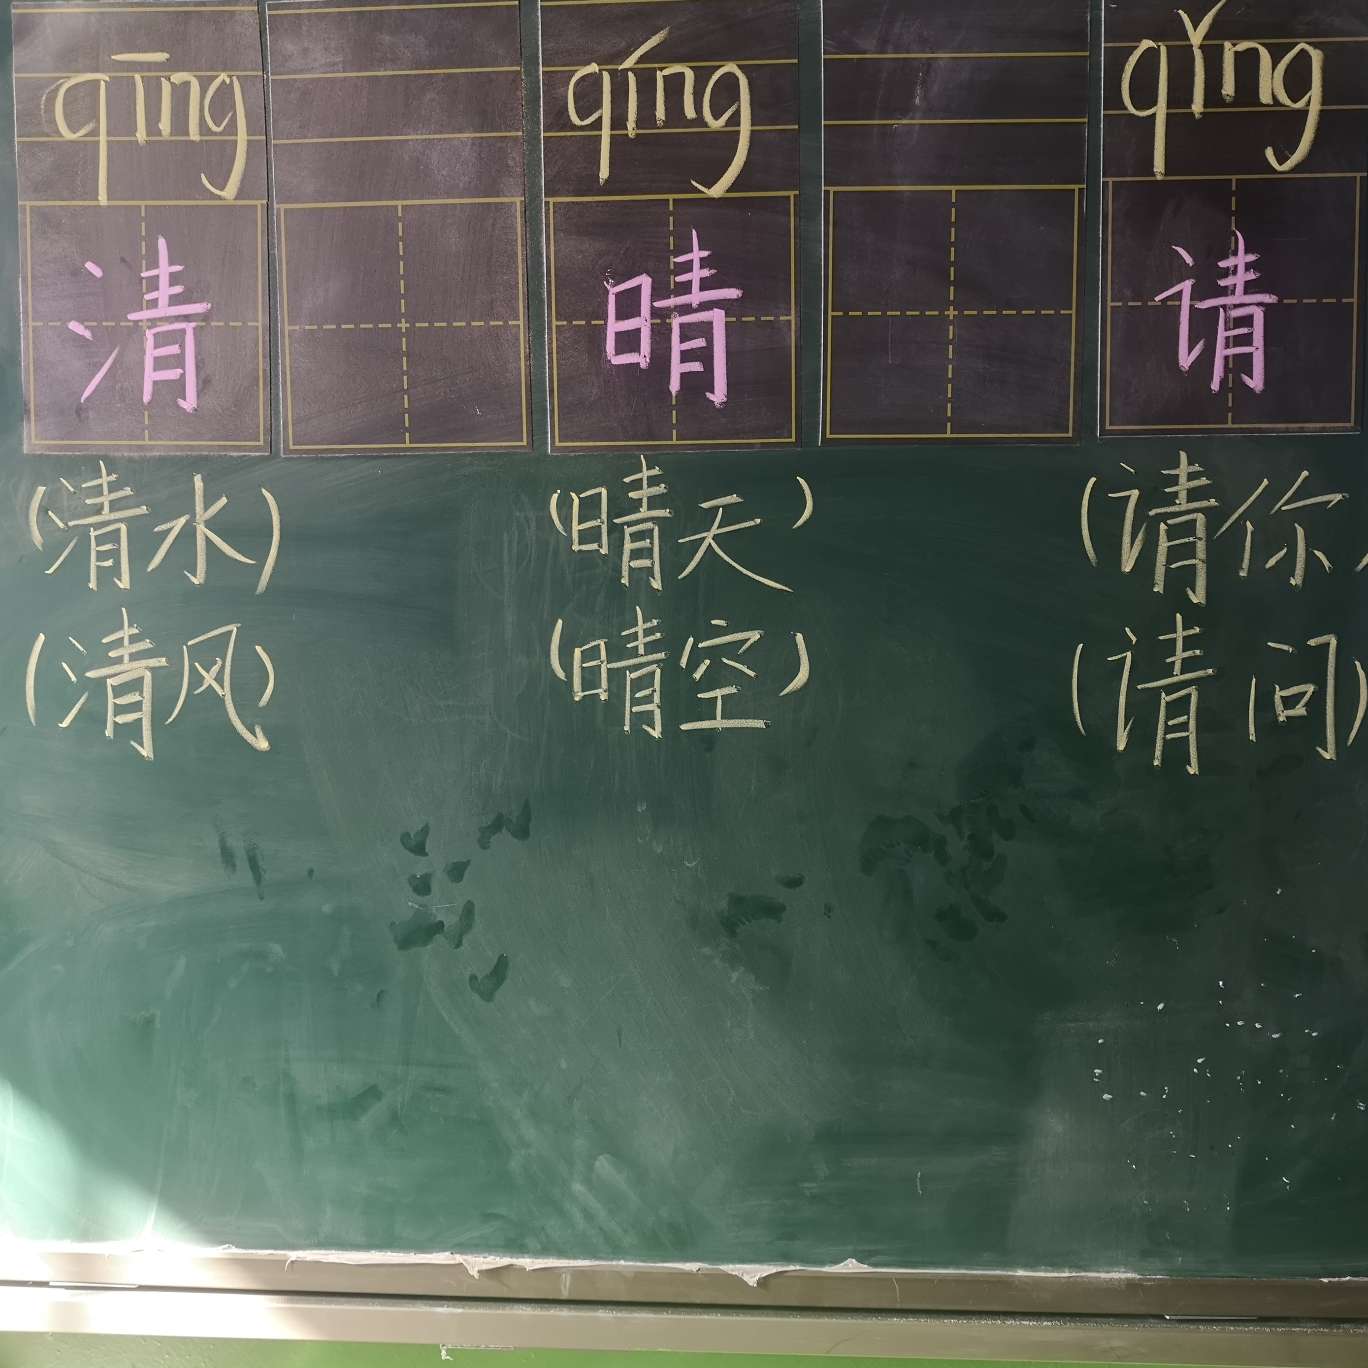 qīng qíng qǐng
清 晴 请
(清水) (晴天) (请你)
(清风) (晴空) (请问)